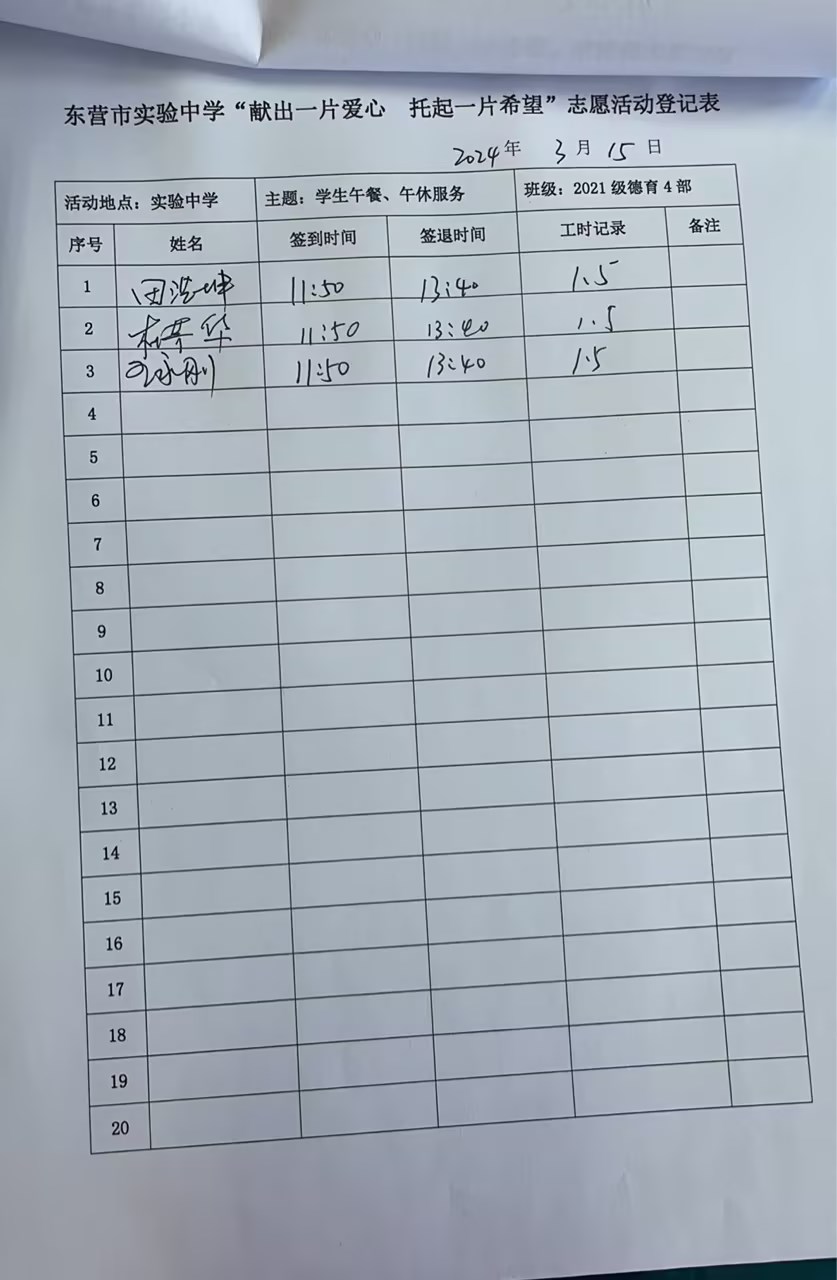 东营市实验中学“献出一片爱心 托起一片希望”志愿活动登记表
2024年 3月 15日
活动地点：实验中学 主题：学生午餐、午休服务 班级：2021级德育4部
序号 姓名 签到时间 签退时间 工时记录 备注
1 田浩坤 11:50 13:40 1.5
2 荣华 11:50 13:40 1.5
3 11:50 13:40 1.5
4
5
6
7
8
9
10
11
12
13
14
15
16
17
18
19
20